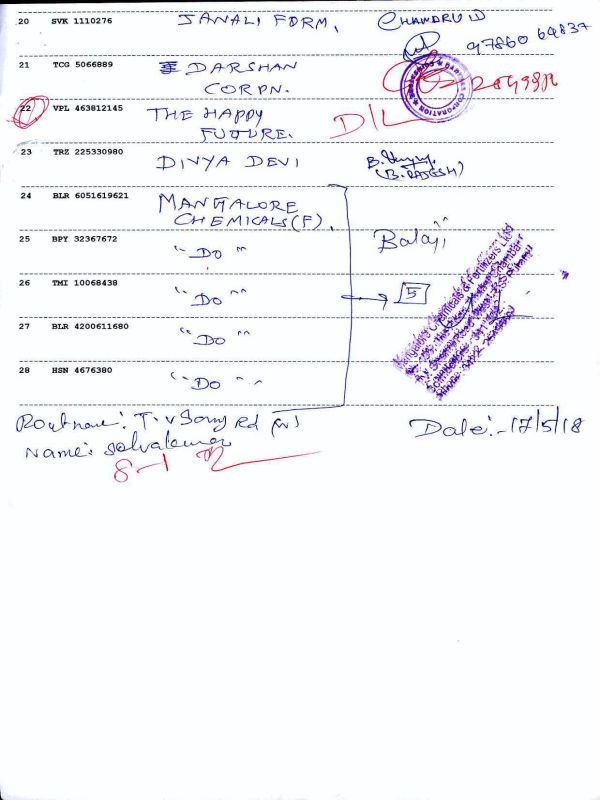 20 SVK 1110276 JANALI FORM, CHANDRU D
97860 69837
21 TCG 5066889 DARSHAN
CORPN.
22 VPL 463812145 THE HAPPY D/L
FUTURE.
23 TRZ 225330980 DIVYA DEVI
(B. RAJESH)
24 BLR 6051619621 MANGALORE
CHEMICALS (F).
25 BPY 32367672 "Do" Balaji
26 TMI 10068438 "Do" 5
27 BLR 4200611680 "Do"
28 HSN 4676380 "Do"
Mangalore Chemicals & Fertilizers Ltd
Rout name: T.V Samy Rd (W) Date:- 17/5/18
Name: Selvakumar
8-1